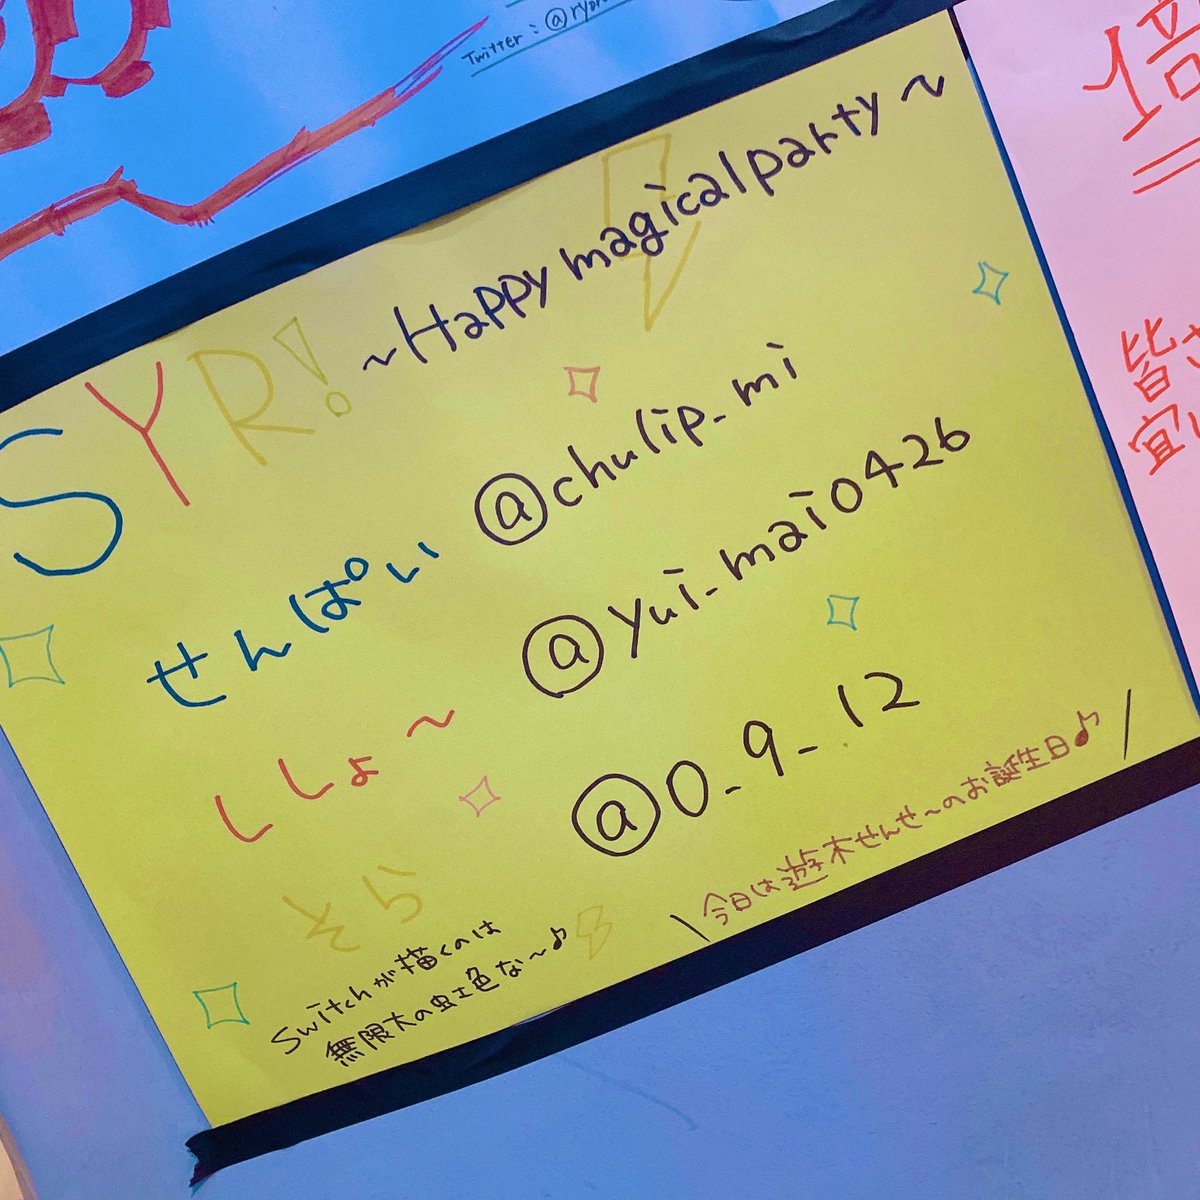 Twitter : @ryon
SYR! ～Happy magical party～
せんぱい @chulip_mi
ししょ～ @yui_mai0426
そら @0_9_12
Switchが描くのは
無限大の虹色な～♪
\ 今日は遊木せんせ～のお誕生日♪ /
倍
皆さ
宜し